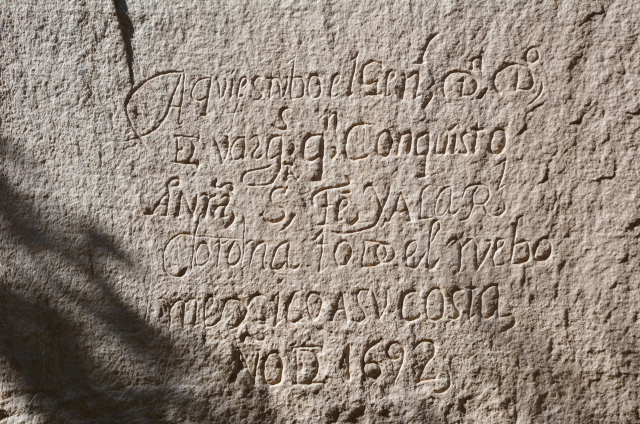 Aqui estubo el Genl. Dn. Do.
De Vargs. qn. Conquisto
a nra. Sta. Fe Y A LA Rl.
Corona todo el nuebo
mexico A SU costa
Año De 1692